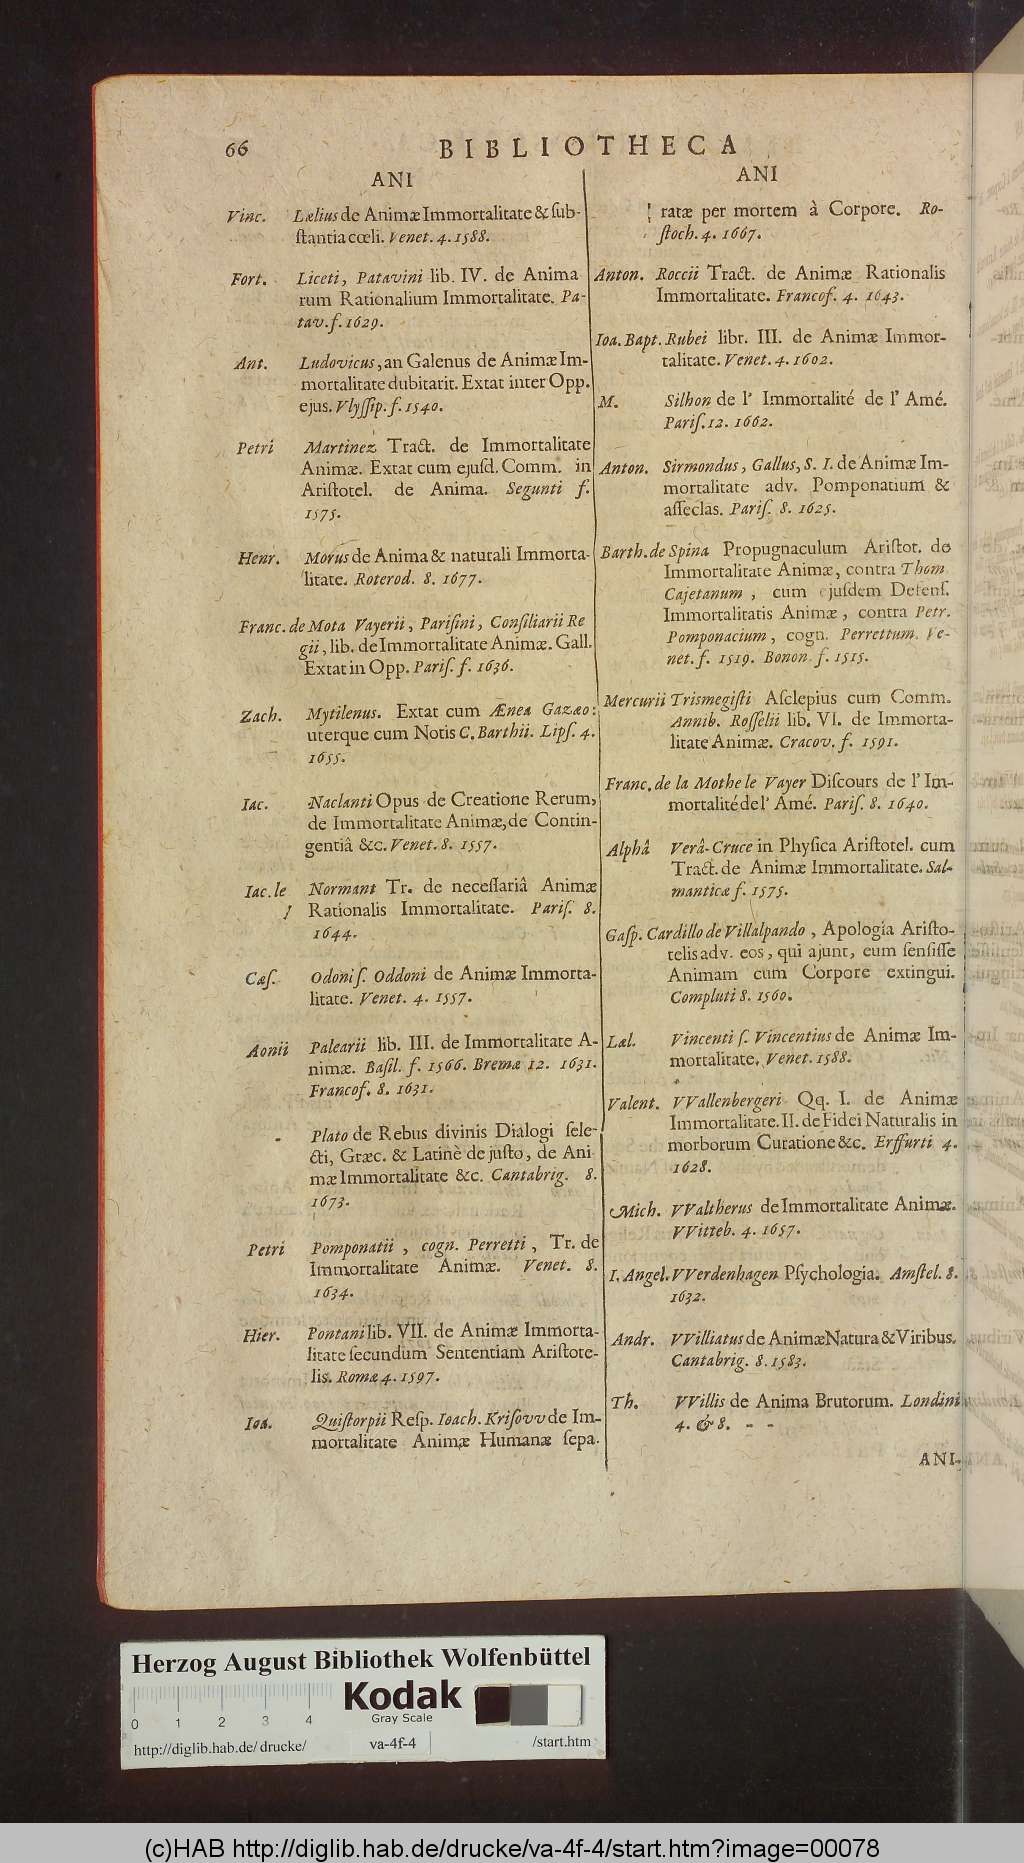 66
BIBLIOTHECA
ANI
Vinc. Lælius de Animæ Immortalitate & ſub-
ſtantia cœli. Venet. 4. 1588.
Fort. Liceti, Patavini lib. IV. de Anima
rum Rationalium Immortalitate. Pa-
tav. f. 1629.
Ant. Ludovicus, an Galenus de Animæ Im-
mortalitate dubitarit. Extat inter Opp.
ejus. Vlyſſip. f. 1540.
Petri Martinez Tract. de Immortalitate
Animæ. Extat cum ejuſd. Comm. in
Ariſtotel. de Anima. Segunti f.
1575.
Henr. Morus de Anima & naturali Immorta-
litate. Roterod. 8. 1677.
Franc. de Mota Vayerii, Pariſini, Conſiliarii Re
gii, lib. de Immortalitate Animæ. Gall.
Extat in Opp. Pariſ. f. 1636.
Zach. Mytilenus. Extat cum Ænea Gazæo:
uterque cum Notis C. Barthii. Lipſ. 4.
1655.
Iac. Naclanti Opus de Creatione Rerum,
de Immortalitate Animæ, de Contin-
gentiâ &c. Venet. 8. 1557.
Iac. le Normant Tr. de neceſſariâ Animæ
Rationalis Immortalitate. Pariſ. 8.
1644.
Cæſ. Odoni ſ. Oddoni de Animæ Immorta-
litate. Venet. 4. 1557.
Aonii Palearii lib. III. de Immortalitate A-
nimæ. Baſil. f. 1566. Bremæ 12. 1631.
Francof. 8. 1631.
- Plato de Rebus divinis Dialogi ſele-
cti, Græc. & Latinè de juſto, de Ani
mæ Immortalitate &c. Cantabrig. 8.
1673.
Petri Pomponatii, cogn. Perretti, Tr. de
Immortalitate Animæ. Venet. 8.
1634.
Hier. Pontani lib. VII. de Animæ Immorta-
litate ſecundum Sententiam Ariſtote-
lis. Romæ 4. 1597.
Ioa. Quiſtorpii Reſp. Ioach. Kriſovv de Im-
mortalitate Animæ Humanæ ſepa.
ANI
ratæ per mortem à Corpore. Ro-
ſtoch. 4. 1667.
Anton. Roccii Tract. de Animæ Rationalis
Immortalitate. Francof. 4. 1643.
Ioa. Bapt. Rubei libr. III. de Animæ Immor-
talitate. Venet. 4. 1602.
M. Silhon de l' Immortalité de l' Amé.
Pariſ. 12. 1662.
Anton. Sirmondus, Gallus, S. I. de Animæ Im-
mortalitate adv. Pomponatium &
aſſeclas. Pariſ. 8. 1625.
Barth. de Spina Propugnaculum Ariſtot. de
Immortalitate Animæ, contra Thom
Cajetanum, cum ejuſdem Defenſ.
Immortalitatis Animæ, contra Petr.
Pomponacium, cogn. Perrettum. Ve-
net. f. 1519. Bonon. f. 1515.
Mercurii Trismegiſti Aſclepius cum Comm.
Annib. Roſſelii lib. VI. de Immorta-
litate Animæ. Cracov. f. 1591.
Franc. de la Mothe le Vayer Diſcours de l' Im-
mortalité de l' Amé. Pariſ. 8. 1640.
Alphâ Verâ-Cruce in Phyſica Ariſtotel. cum
Tract. de Animæ Immortalitate. Sal-
manticæ f. 1575.
Gaſp. Cardillo de Villalpando, Apologia Ariſto-
telis adv. eos, qui ajunt, eum ſenſiſſe
Animam cum Corpore extingui.
Compluti 8. 1560.
Læl. Vincenti ſ. Vincentius de Animæ Im-
mortalitate. Venet. 1588.
Valent. VVallenbergeri Qq. I. de Animæ
Immortalitate. II. de Fidei Naturalis in
morborum Curatione &c. Erffurti 4.
1628.
Mich. VValtherus de Immortalitate Animæ.
VVitteb. 4. 1657.
I. Angel. VVerdenhagen Pſychologia. Amſtel. 8.
1632.
Andr. VVilliatus de Animæ Natura & Viribus.
Cantabrig. 8. 1583.
Th. VVillis de Anima Brutorum. Londini
4. & 8. - -
ANI-
Herzog August Bibliothek Wolfenbüttel
Kodak
Gray Scale
0 1 2 3 4
http://diglib.hab.de/drucke/ va-4f-4 /start.htm
(c)HAB http://diglib.hab.de/drucke/va-4f-4/start.htm?image=00078